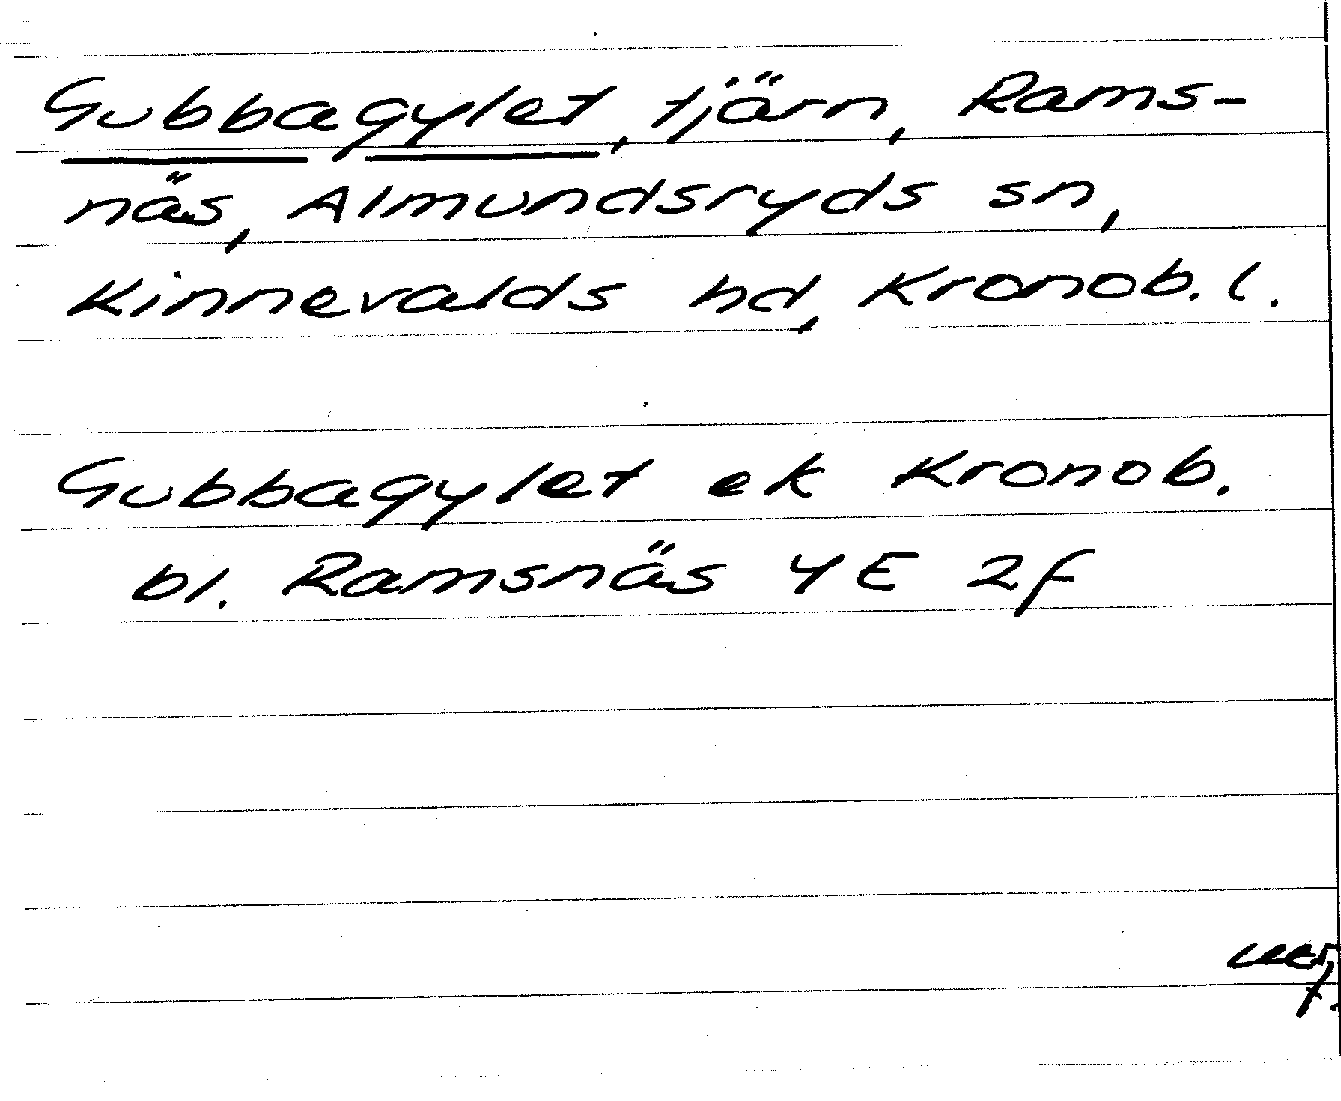 Gubbagylet, tjärn, Rams-
näs, Almundsryds sn,
Kinnevalds hd, Kronob. l.
Gubbagylet ek Kronob.
bl. Ramsnäs 4E 2f